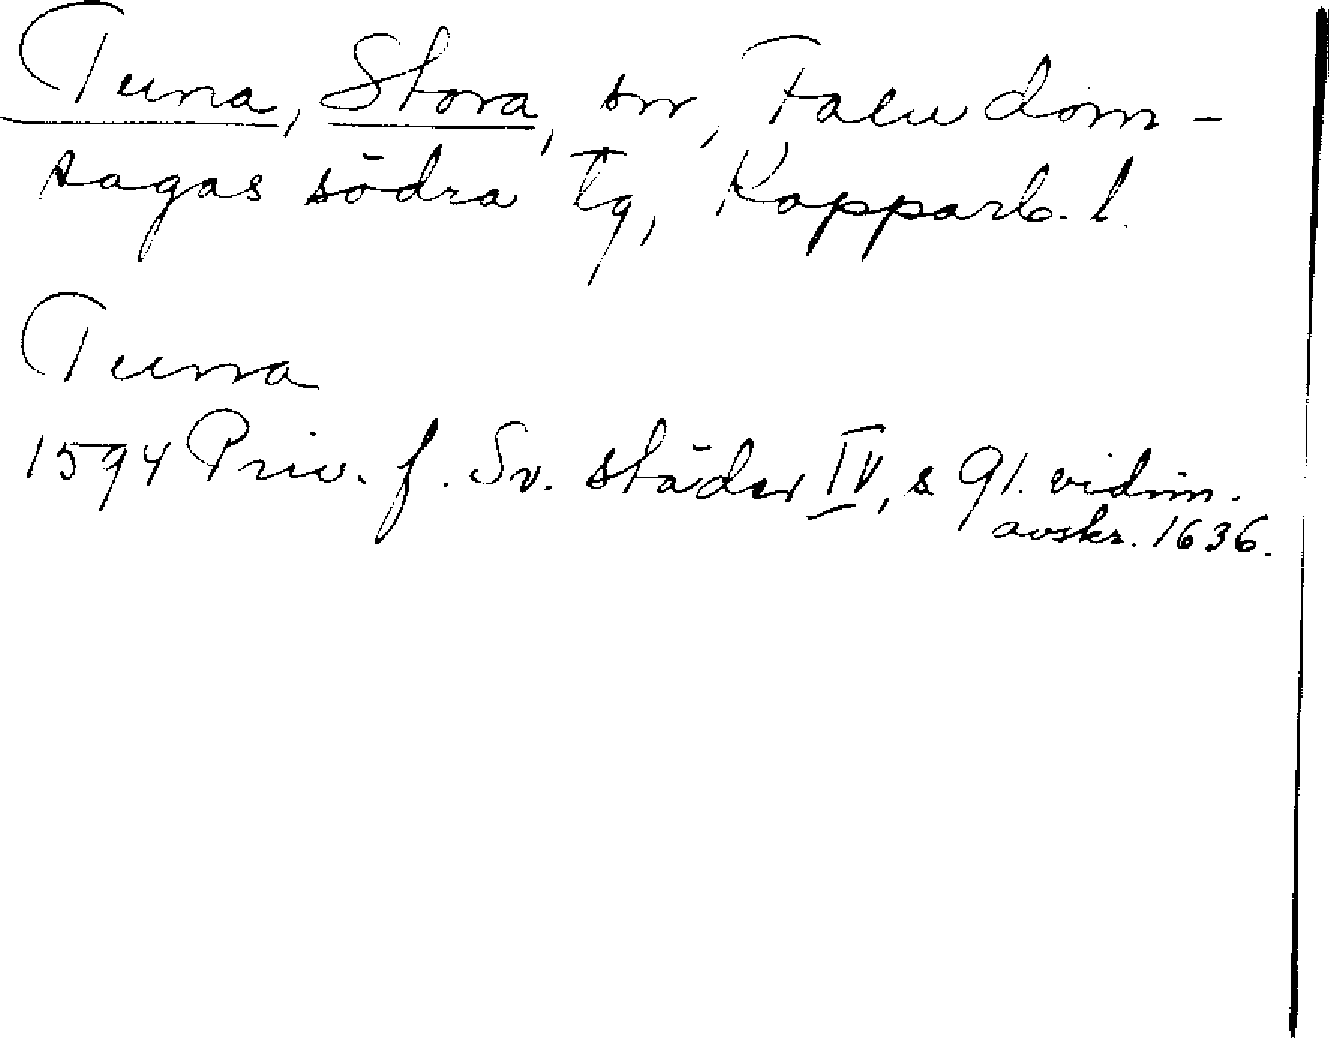 Tuna, Stora, sn, Falu dom-
sagas södra tg, Kopparb. l.
Tuna
1594 Priv. f. Sv. städer IV, s 91. vidim.
avskr. 1636.